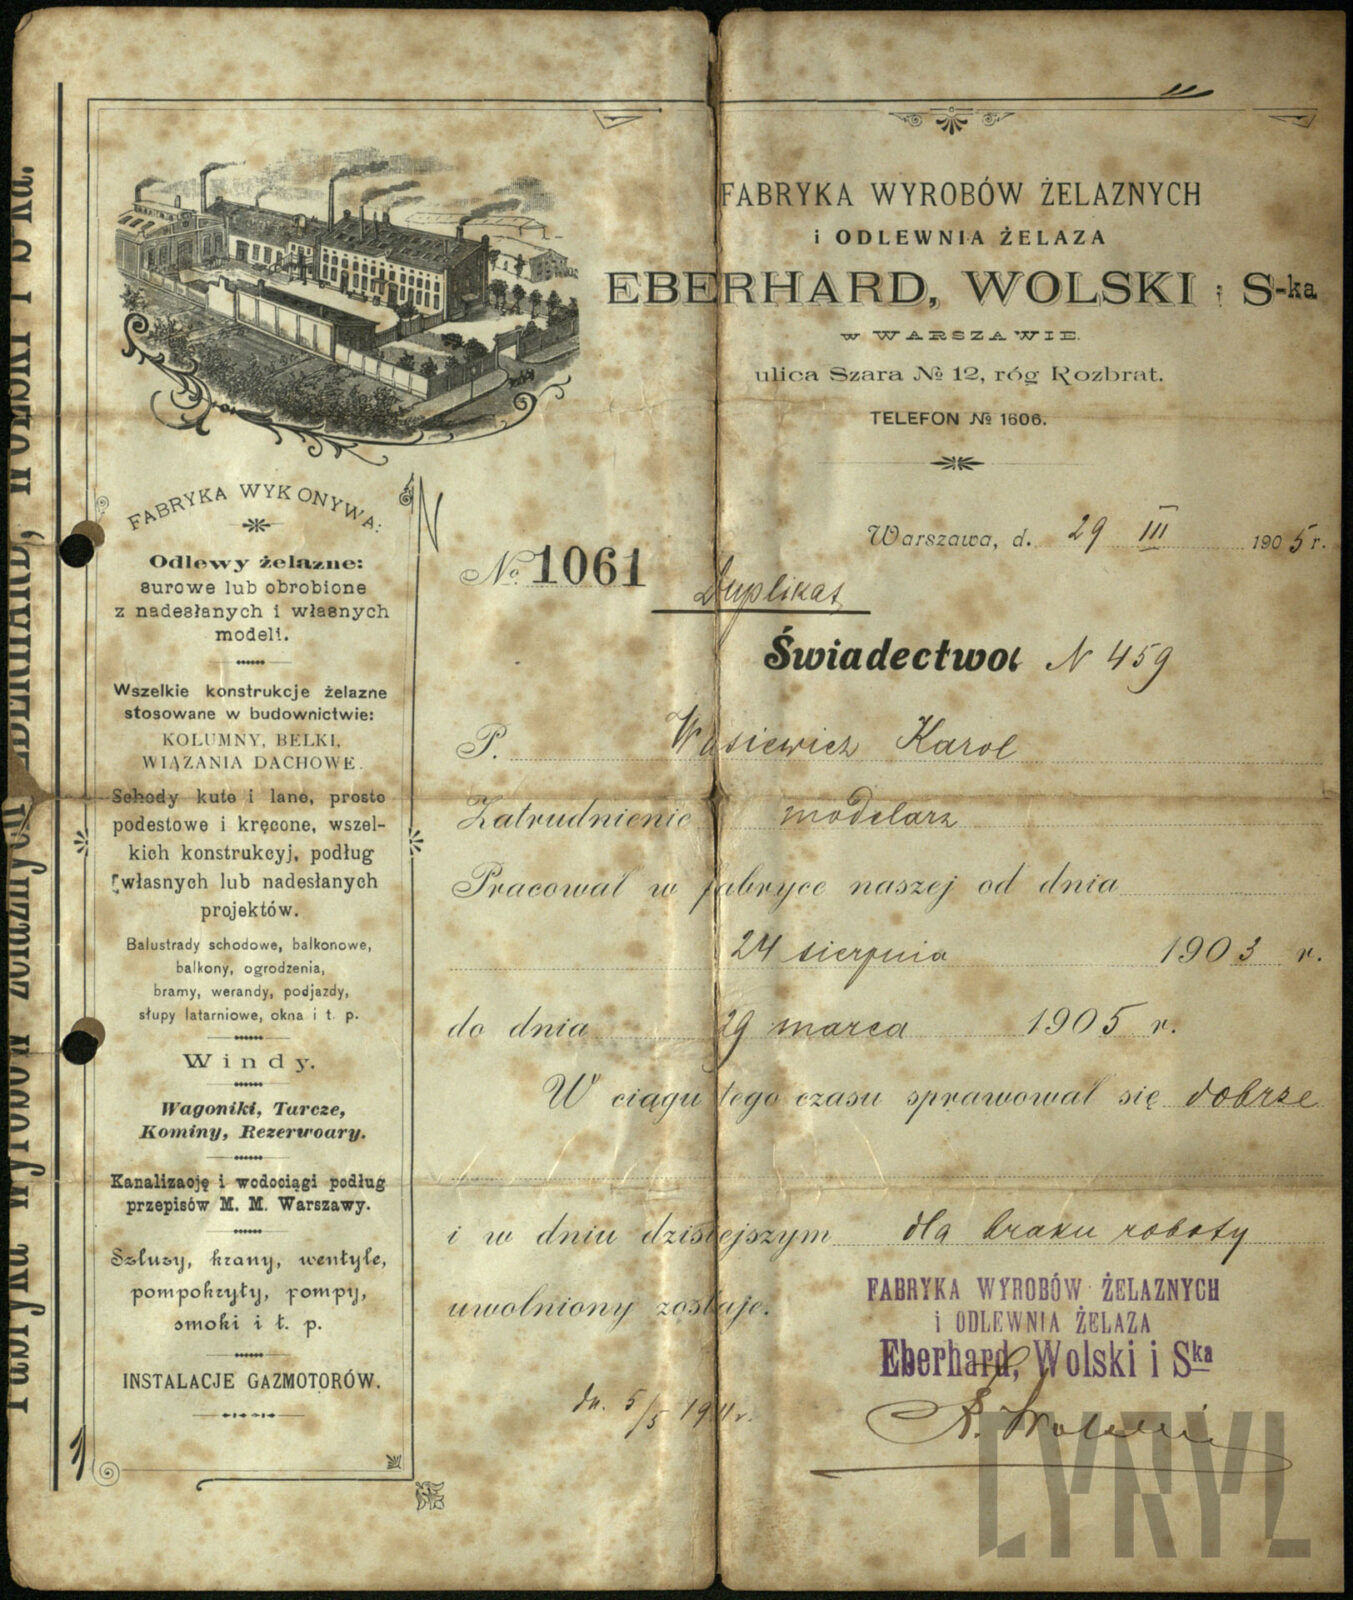 FABRYKA WYROBÓW ŻELAZNYCH
i ODLEWNIA ŻELAZA
EBERHARD, WOLSKI i S-ka
w WARSZAWIE.
ulica Szara № 12, róg Rozbrat.
TELEFON № 1606.
Fabryka wyrobów żelaznych EBERHARD, WOLSKI i S-ka.
FABRYKA WYKONYWA:
Odlewy żelazne:
surowe lub obrobione
z nadesłanych i własnych
modeli.
Wszelkie konstrukcje żelazne
stosowane w budownictwie:
KOLUMNY, BELKI,
WIĄZANIA DACHOWE.
Schody kute i lane, proste
podestowe i kręcone, wszel-
kich konstrukcyj, podług
własnych lub nadesłanych
projektów.
Balustrady schodowe, balkonowe,
balkony, ogrodzenia,
bramy, werandy, podjazdy,
słupy latarniowe, okna i t. p.
Windy.
Wagoniki, Tarcze,
Kominy, Rezerwoary.
Kanalizację i wodociągi podług
przepisów M. M. Warszawy.
Szluzy, krany, wentyle,
pompokryty, pompy,
smoki i t. p.
INSTALACJE GAZMOTORÓW.
Warszawa, d. 29 III 1905 r.
N
No. 1061
Duplikat
Świadectwo N 459
P. Wasiewicz Karol
Zatrudnienie modelarz
Pracował w fabryce naszej od dnia
24 sierpnia 1903 r.
do dnia 29 marca 1905 r.
W ciągu tego czasu sprawował się dobrze
i w dniu dzisiejszym dla braku roboty
uwolniony zostaje.
FABRYKA WYROBÓW ŻELAZNYCH
i ODLEWNIA ŻELAZA
Eberhard, Wolski i Ska
dn. 5/5 1911 r.
CYRYL